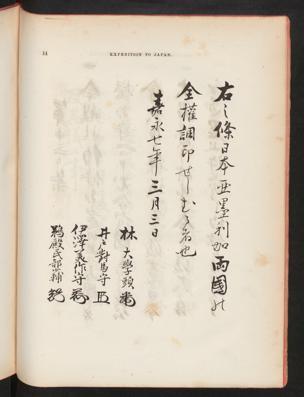 34
EXPEDITION TO JAPAN.
右之條日本亜墨利加兩國の
全權調印せしむる者也
嘉永七年三月三日
林大學頭
井戸對馬守
伊澤美作守
鵜殿民部少輔